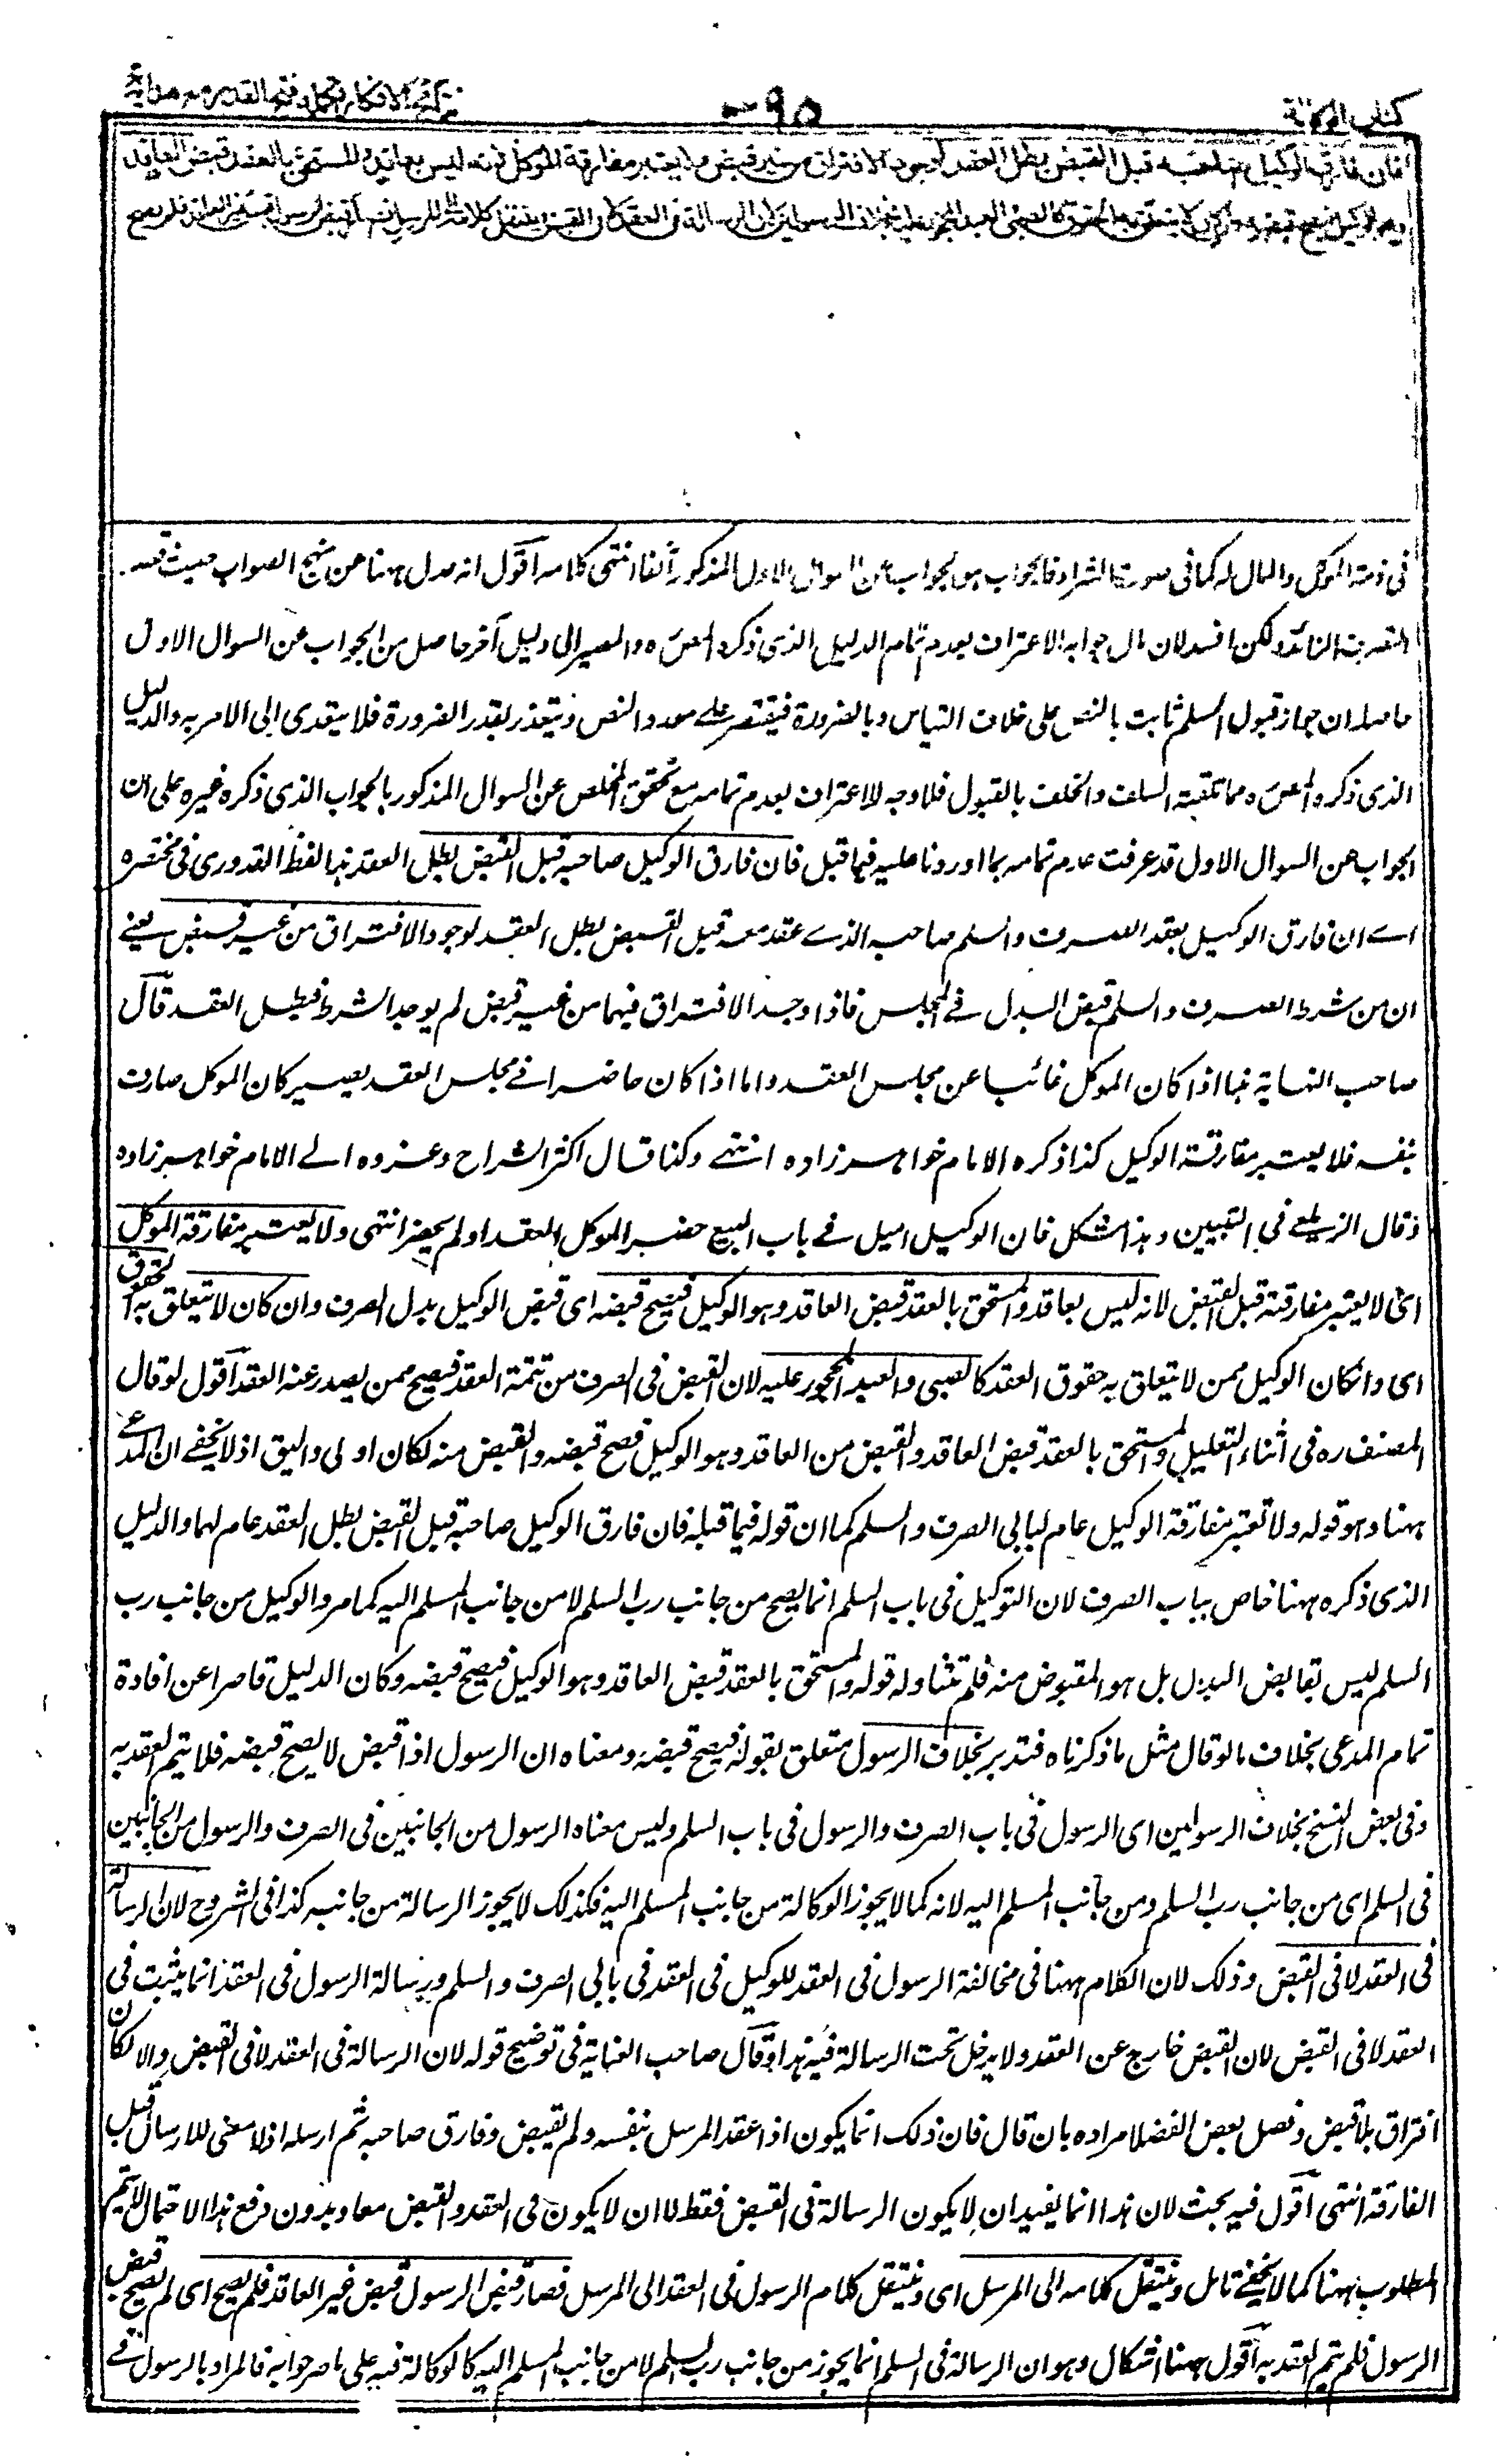 كتاب الوكالة
٩٥
نتائج الافكار تكملة فتح القدير مع هداية
فان فارق الوكيل صاحبه قبل القبض بطل العقد لوجود الافتراق من غير قبض ولا يعتبر مفارقة الموكل لانه ليس بعاقد والمستحق بالعقد قبض العاقد
وهو الوكيل فيصح قبضه وان كان لا يتعلق به الحقوق كالصبي والعبد المحجور عليه بخلاف الرسولين لان الرسالة في العقد لا في القبض وينتقل كلامه الى المرسل فصار قبض الرسول قبض غير العاقد فلم يصح
في ذمة الموكل والمال له كما في صورة الشراء فالجواب هو الجواب عن السوال الاول المذكور آنفا انتهى كلامه اقول انه عدل ههنا عن منهج الصواب حيث قصد
التصرف الزائد ولكن افسد لان مآل جوابه الاعتراف بعدم تمام الدليل الذى ذكره المص ره والمصير الى دليل آخر حاصل من الجواب عن السوال الاول
حاصله ان جواز قبول المسلم ثابت بالنص على خلاف القياس وبالضرورة فيقتصر على مورد النص ويتقدر بقدر الضرورة فلا يتعدى الى الامر به والدليل
الذى ذكره المص ره مما تلقيته السلف والخلف بالقبول فلا وجه للاعتراف بعدم تمامه مع تحقق المخلص عن السوال المذكور بالجواب الذى ذكره غيره على ان
الجواب عن السوال الاول قد عرفت عدم تمامه بما اوردنا عليه فيما قبل فان فارق الوكيل صاحبه قبل القبض بطل العقد هذا لفظ القدورى في مختصره
اے ان فارق الوكيل بعقد الصرف والسلم صاحبه الذے عقد معه قبل القبض بطل العقد لوجود الافتراق من غير قبض يعنے
ان من شرط الصرف والسلم قبض البدل فے المجلس فاذا وجد الافتراق فيهما من غير قبض لم يوجد الشرط فبطل العقد قال
صاحب النهاية هذا اذا كان الموكل غائبا عن مجلس العقد واما اذا كان حاضرا فے مجلس العقد يصير كان الموكل صارف
بنفسه فلا يعتبر مفارقة الوكيل كذا ذكره الامام خواهر زاده انتهے وكذا قال اكثر الشراح وعزوه الے الامام خواهر زاده
وقال الزيلعے في التبيين وهذا مشكل فان الوكيل اصيل فے باب البيع حضر الموكل العقد او لم يحضر انتهى ولا يعتبر مفارقة الموكل
اى لا يعتبر مفارقته قبل القبض لانه ليس بعاقد والمستحق بالعقد قبض العاقد وهو الوكيل فيصح قبضه اى قبض الوكيل بدل الصرف وان كان لا يتعلق به الحقوق
اى وان كان الوكيل ممن لا يتعلق به حقوق العقد كالصبى والعبد المحجور عليه لان القبض فى الصرف من تتمة العقد فيصح ممن يصدر عنه العقد اقول لو قال
المصنف ره فى اثناء التعليل والمستحق بالعقد قبض العاقد والقبض من العاقد وهو الوكيل فصح قبضه والقبض منه لكان اولى واليق اذ لا يخفے ان المدعے
ههنا وهو قوله ولا تعتبر مفارقة الوكيل عام لبابى الصرف والسلم كما ان قوله فيما قبله فان فارق الوكيل صاحبه قبل القبض بطل العقد عام لهما والدليل
الذى ذكره ههنا خاص بباب الصرف لان التوكيل فى باب السلم انما يصح من جانب رب السلم لا من جانب المسلم اليه كما مر والوكيل من جانب رب
السلم ليس بقابض البدل بل هو المقبوض منه فلم يتناوله قوله والمستحق بالعقد قبض العاقد وهو الوكيل فيصح قبضه وكان الدليل قاصرا عن افادة
تمام المدعى بخلاف ما لو قال مثل ما ذكرناه فتدبر بخلاف الرسول متعلق بقوله فيصح قبضه ومعناه ان الرسول اذا قبض لا يصح قبضه فلا يتم العقد به
وفى بعض النسخ بخلاف الرسولين اى الرسول فى باب الصرف والرسول فى باب السلم وليس معناه الرسول من الجانبين فى الصرف والرسول من الجانبين
فى السلم اى من جانب رب السلم ومن جانب المسلم اليه لانه كما لا يجوز الوكالة من جانب المسلم اليه فكذلك لا يجوز الرسالة من جانبه كذا فى الشروح لان الرسالة
فى العقد لا فى القبض وذلك لان الكلام ههنا فى مخالفة الرسول فى العقد للوكيل فى العقد فى بابى الصرف والسلم ورسالة الرسول فى العقد انما يثبت فى
العقد لا فى القبض لان القبض خارج عن العقد ولا يدخل تحت الرسالة فيه هذا وقال صاحب العناية فى توضيح قوله لان الرسالة فى العقد لا فى القبض والا لكان
افتراق بلا قبض وفصل بعض الفضلا مراده بان قال فان ذلك انما يكون اذا عقد المرسل بنفسه ولم يقبض وفارق صاحبه ثم ارسله اذ لا معنى للارسال قبل
المفارقة انتهى اقول فيه بحث لان هذا انما يفيد ان لا يكون الرسالة فى القبض فقط لا ان لا يكون فى العقد والقبض معا وبدون دفع هذا الاحتمال لا يتم
المطلوب ههنا كما لا يخفے تامل وينتقل كلامه الى المرسل اى وينتقل كلام الرسول فى العقد الى المرسل فصار قبض الرسول قبض غير العاقد فلم يصح اى لم يصح قبض
الرسول فلم يتم العقد به اقول ههنا اشكال وهو ان الرسالة فى السلم انما يجوز من جانب رب السلم لا من جانب المسلم اليه كالوكالة فيه على ما صرحوا به فالمراد بالرسول فے